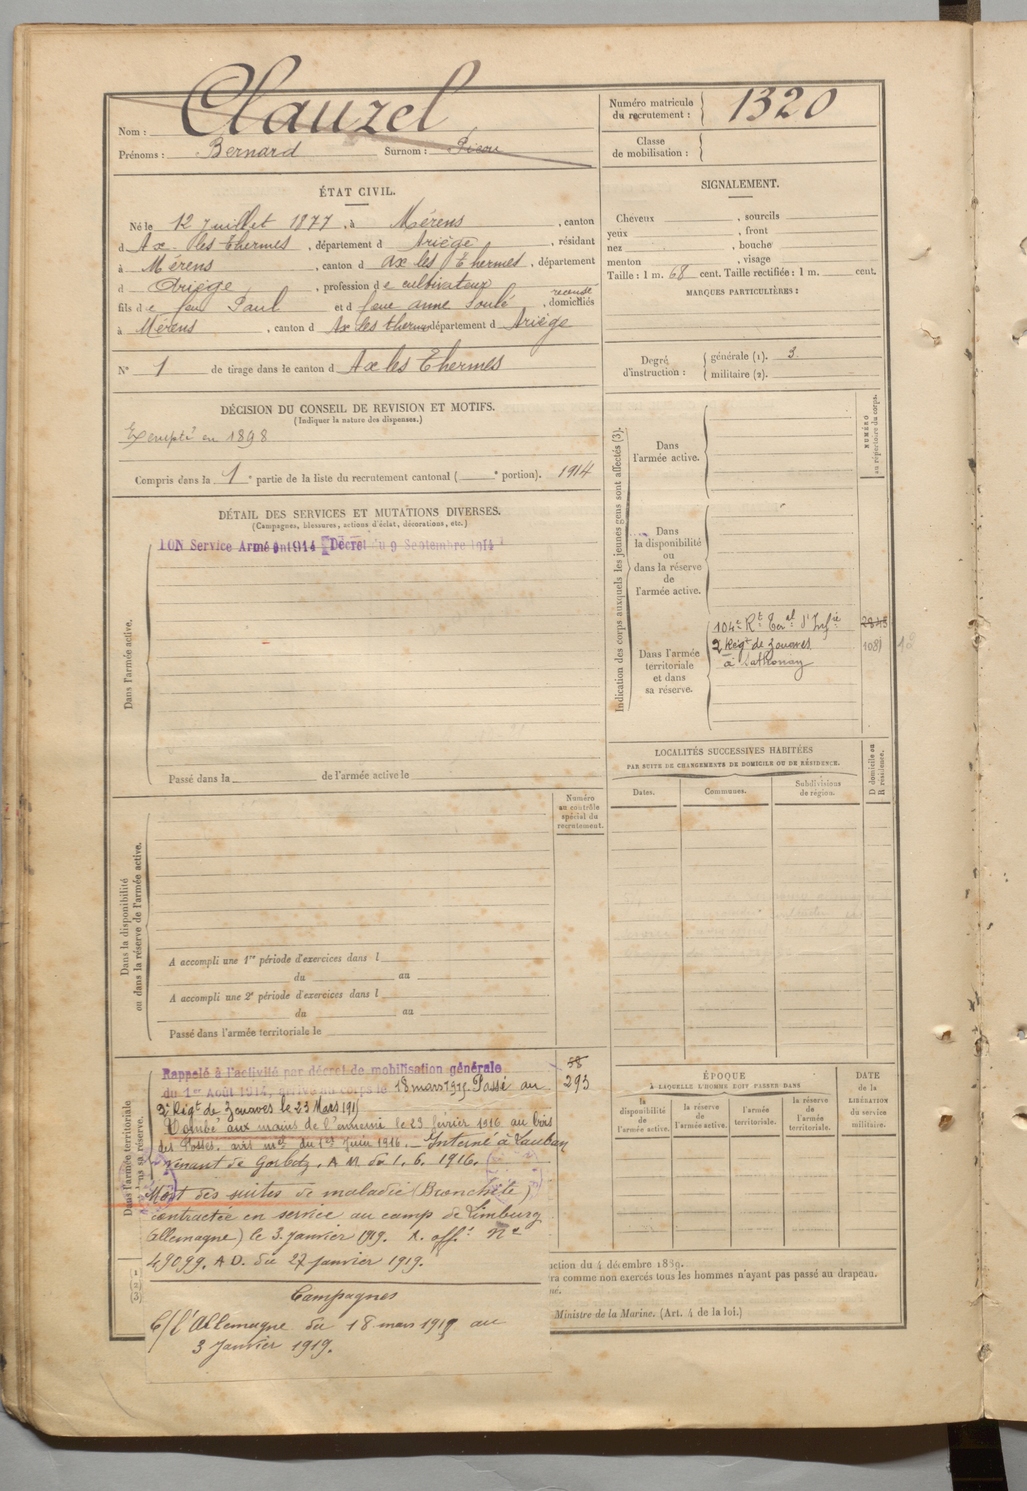 Nom : Clauzel
Prénoms : Bernard Surnom : Picou
Numéro matricule
du recrutement : 1320
Classe
de mobilisation :
ÉTAT CIVIL.
Né le 12 Juillet 1877, à Mérens, canton
d Ax-les-Thermes, département d Ariège, résidant
à Mérens, canton d Ax les Thermes, département
d Ariège, profession de cultivateur
fils de feu Paul et de feue anne Soulé, domiciliés
recensé
à Mérens, canton d Ax les thermes département d Ariège
N° 1 de tirage dans le canton d Ax les Thermes
SIGNALEMENT.
Cheveux , sourcils
yeux , front
nez , bouche
menton , visage
Taille : 1 m. 68 cent. Taille rectifiée : 1 m. cent.
MARQUES PARTICULIÈRES :
Degré
d'instruction :
générale (1). 3
militaire (2).
DÉCISION DU CONSEIL DE REVISION ET MOTIFS.
(Indiquer la nature des dispenses.)
Exempté en 1898
Compris dans la 1e partie de la liste du recrutement cantonal ( e portion). 1914
DÉTAIL DES SERVICES ET MUTATIONS DIVERSES.
(Campagnes, blessures, actions d'éclat, décorations, etc.)
BON Service Armé en 1914 Décret du 9 Septembre 1914
Dans l'armée active.
Passé dans la de l'armée active le
Indication des corps auxquels les jeunes gens sont affectés (3).
NUMÉRO
au répertoire du corps.
Dans
l'armée active.
Dans
la disponibilité
ou
dans la réserve
de
l'armée active.
Dans l'armée
territoriale
et dans
sa réserve.
104e Rt Teral d'Infie
2 Régt de Zouaves
à Sathonay
1081
LOCALITÉS SUCCESSIVES HABITÉES
PAR SUITE DE CHANGEMENTS DE DOMICILE OU DE RÉSIDENCE.
Dates.
Communes.
Subdivisions
de région.
D domicile ou
R résidence.
Numéro
au contrôle
spécial du
recrutement.
Dans la disponibilité
ou dans la réserve de l'armée active.
A accompli une 1re période d'exercices dans l
du au
A accompli une 2e période d'exercices dans l
du au
Passé dans l'armée territoriale le
58
293
Dans l'armée territoriale
et dans sa réserve.
Rappelé à l'activité par décret de mobilisation générale
du 1er Août 1914, arrivé au corps le 18 mars 1915. Passé au
2e Régt de Zouaves le 23 Mars 1915
Tombé aux mains de l'ennemi le 23 février 1916 au bois
des Fosses. avis mel du 1er Juin 1916. Interné à Lauban
venant de Gorbotz. A M. du 1. 6. 1916.
Mort des suites de maladie (Bronchite)
contractée en service au camp de Limburg
(Allemagne) le 3 Janvier 1919. A. offel. Ne
49099. A D. du 27 janvier 1919.
Campagnes
C/ l'Allemagne du 18 mars 1915 au
3 Janvier 1919.
ÉPOQUE
À LAQUELLE L'HOMME DUIT PASSER DANS
la
disponibilité
de
l'armée active.
la réserve
de
l'armée active.
l'armée
territoriale.
la réserve
de
l'armée
territoriale.
DATE
de la
LIBÉRATION
du service
militaire.
(1)
(2)
(3)
ction du 4 décembre 1889.
ra comme non exercés tous les hommes n'ayant pas passé au drapeau.
ne.
Ministre de la Marine. (Art. 4 de la loi.)